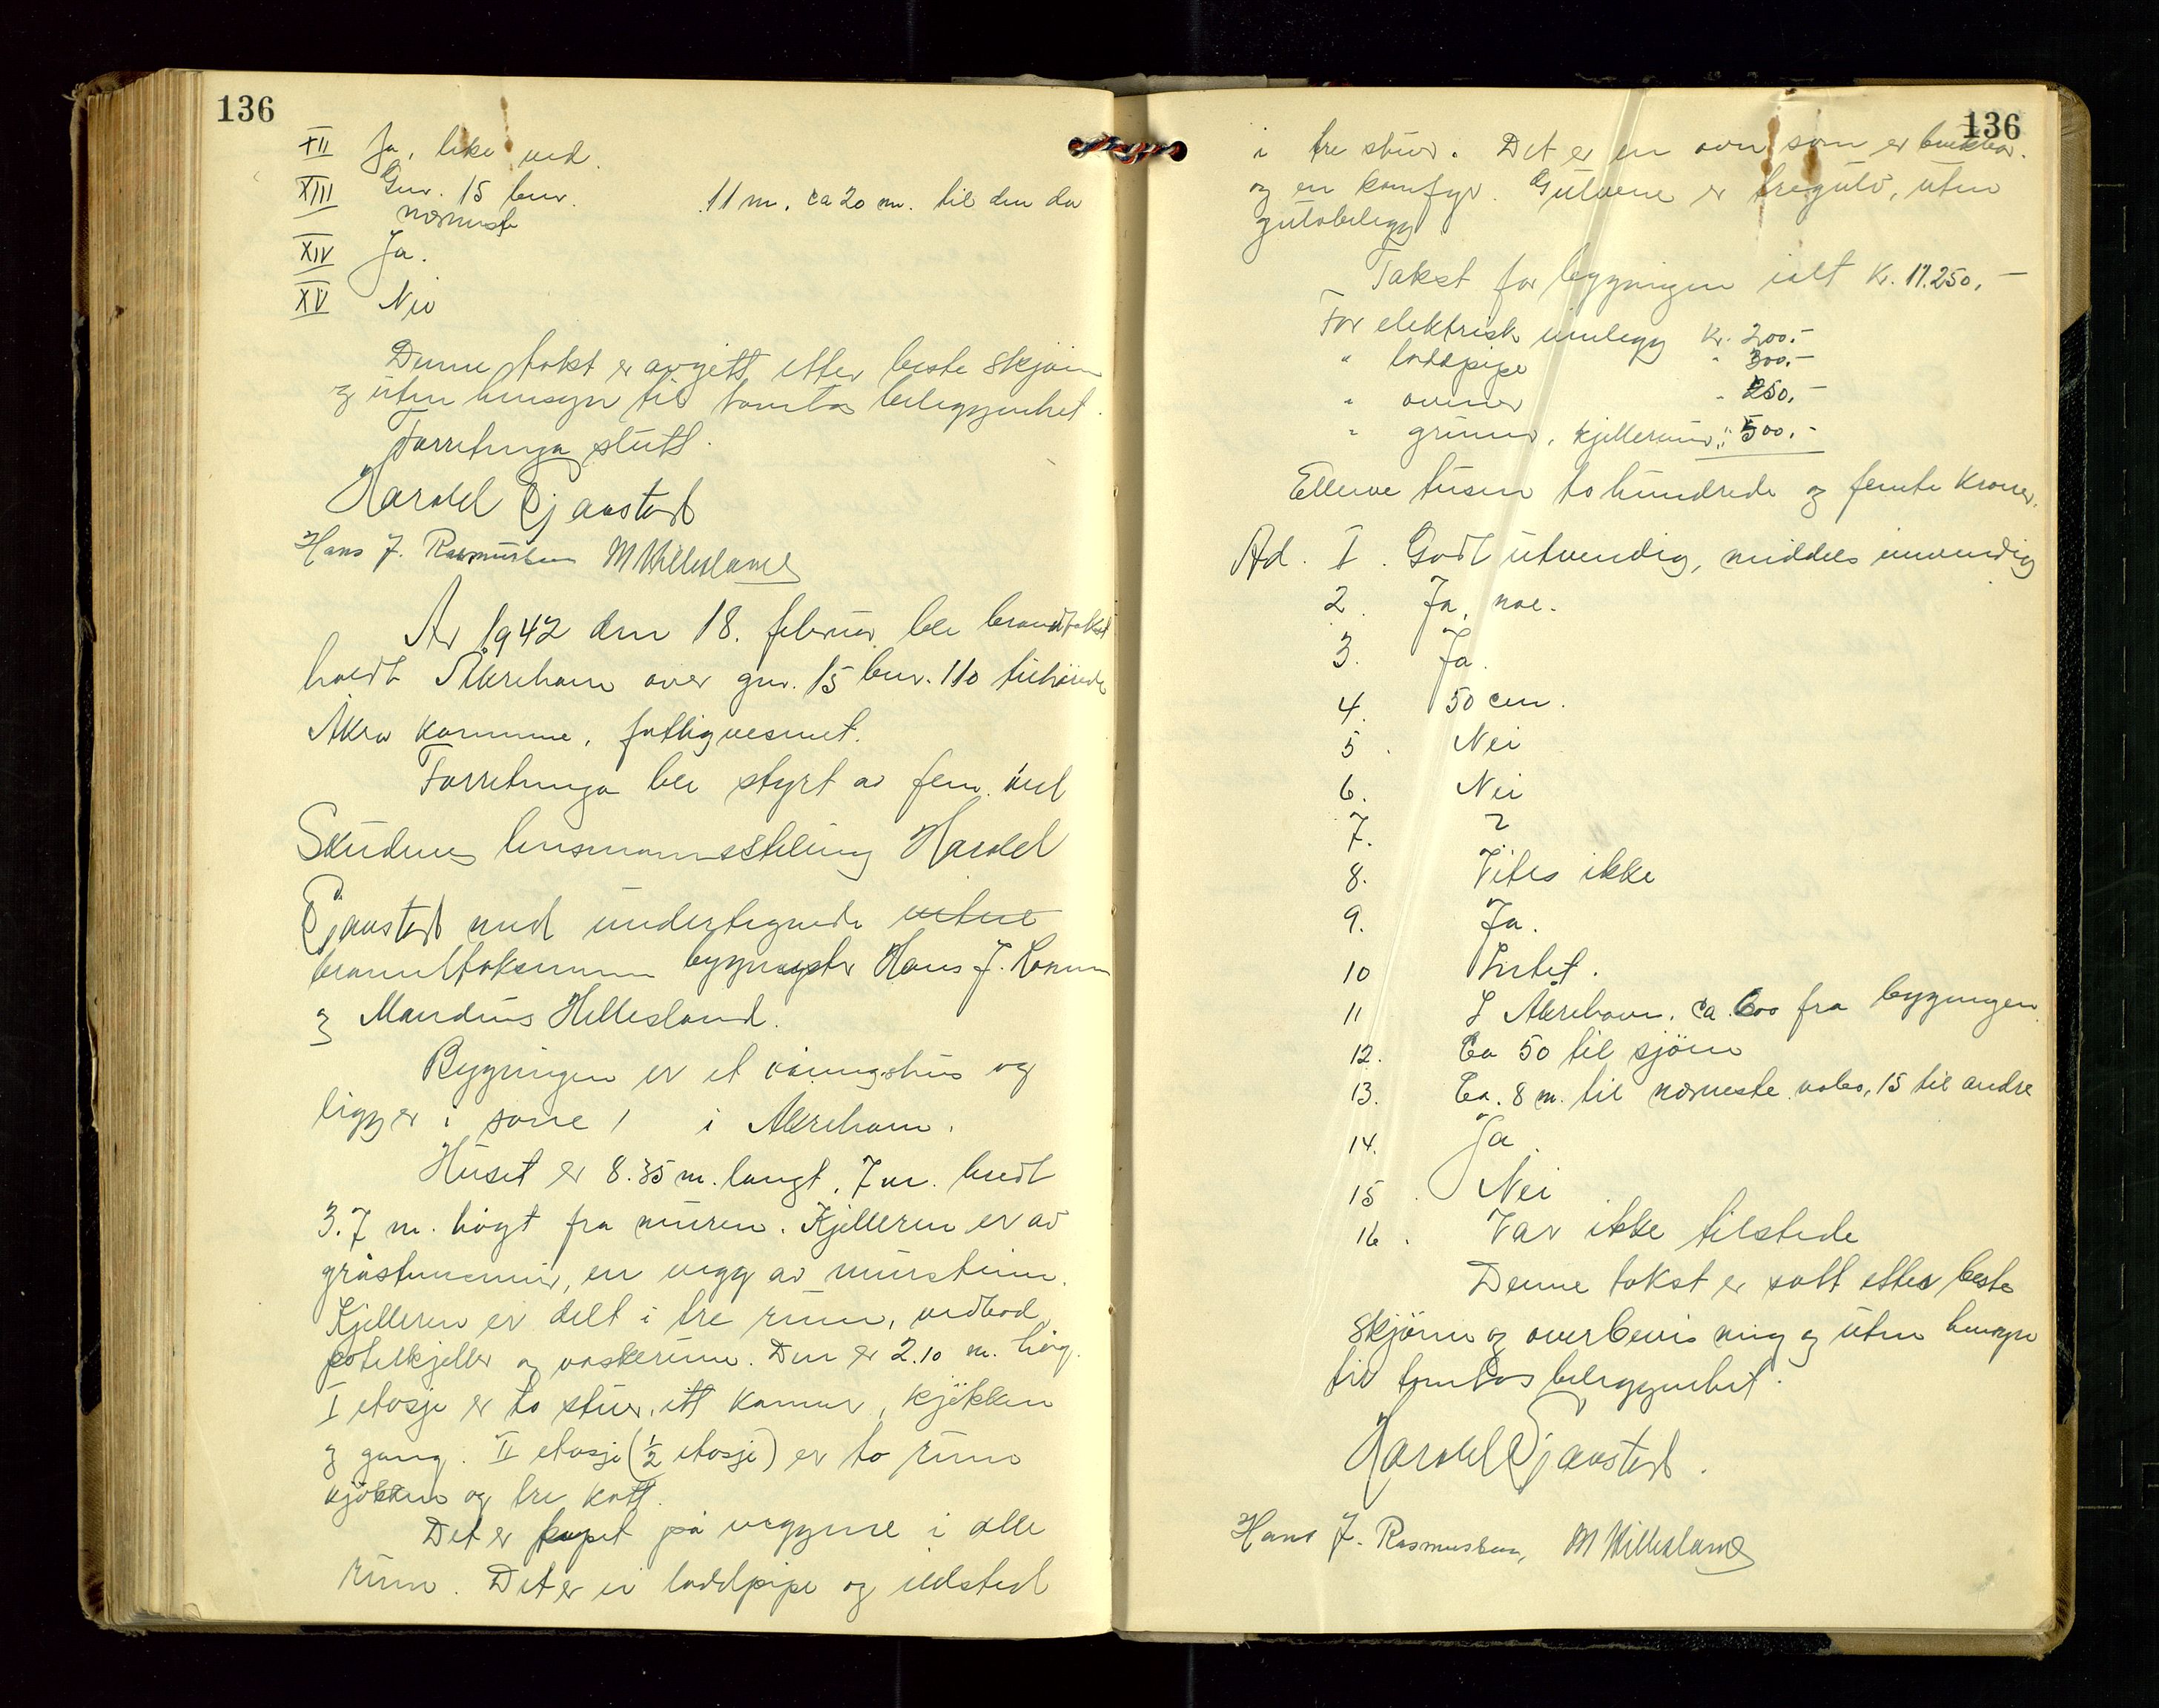 136
XII Ja, like ved.
XIII Gnr. 15 bnr. 11 m. ca 20 m. til den da
nærmeste
XIV Ja.
XV Nei
Denne takst er avgitt etter beste skjønn
og uten hensyn til tomtas beliggenhet.
Forretninga slutt.
Harald Gjaastad
Hans J. Rasmussen M Hillesland
År 1942 den 18. februar ble branntakst
holdt Åkrehavn over gnr. 15 bnr. 110 tilhørende
Åkra kommune, fattigvesenet.
Forretninga ble styrt av ved
Skudenes lensmannsstilling Harald
Gjaastad med undertegnede vitne
branntaksmenn byggmester Hans J.
og Mandius Hillesland.
Bygningen er et våningshus og
ligger i sone 1 i Åkrehavn.
Huset er 8.35 m. langt, 7 m. bredt
3.7 m. høgt fra muren. Kjelleren er av
gråsteinsmur, en vegg av murstein.
Kjelleren er delt i tre rum, vedbod,
potetkjeller og vaskerum. Den er 2.10 m. høg.
I etasje er to stuer, ett kammer, kjøkken
og gang. II etasje (½ etasje) er to rum
kjøkken og tre kott.
Det er papet på veggene i alle
rum. Det er ei loddpipe og ildsted
136
i tre stuer. Det er en ovn som er brukbar.
og en komfyr. Gulvene er tregulv, uten
gulvbelegg
Takst for bygningen ialt kr. 11.250,-
For elektrisk innlegg kr. 200.-
" loddpipe " 300.-
" ovner " 250.-
" grunn, kjellerum " 500.-
Elleve tusen to hundrede og femti kroner.
Ad. I. Godt utvendig, middels innvendig
2. Ja, noe.
3. Ja.
4. 50 cm.
5. Nei
6. Nei
7. 2
8. Vites ikke
9. Ja.
10 Intet.
11 I Åkrehavn. ca. 600 fra bygningen
12. Ca 50 til sjøen
13. Ca. 8 m. til nærmeste nabo, 15 til andre
14. Ja.
15. Nei
16. Var ikke tilstede
Denne takst er satt etter beste
skjønn og overbevisning og uten hensyn
til tomtas beliggenhet.
Harald Gjaastad.
Hans J. Rasmussen, M Hillesland